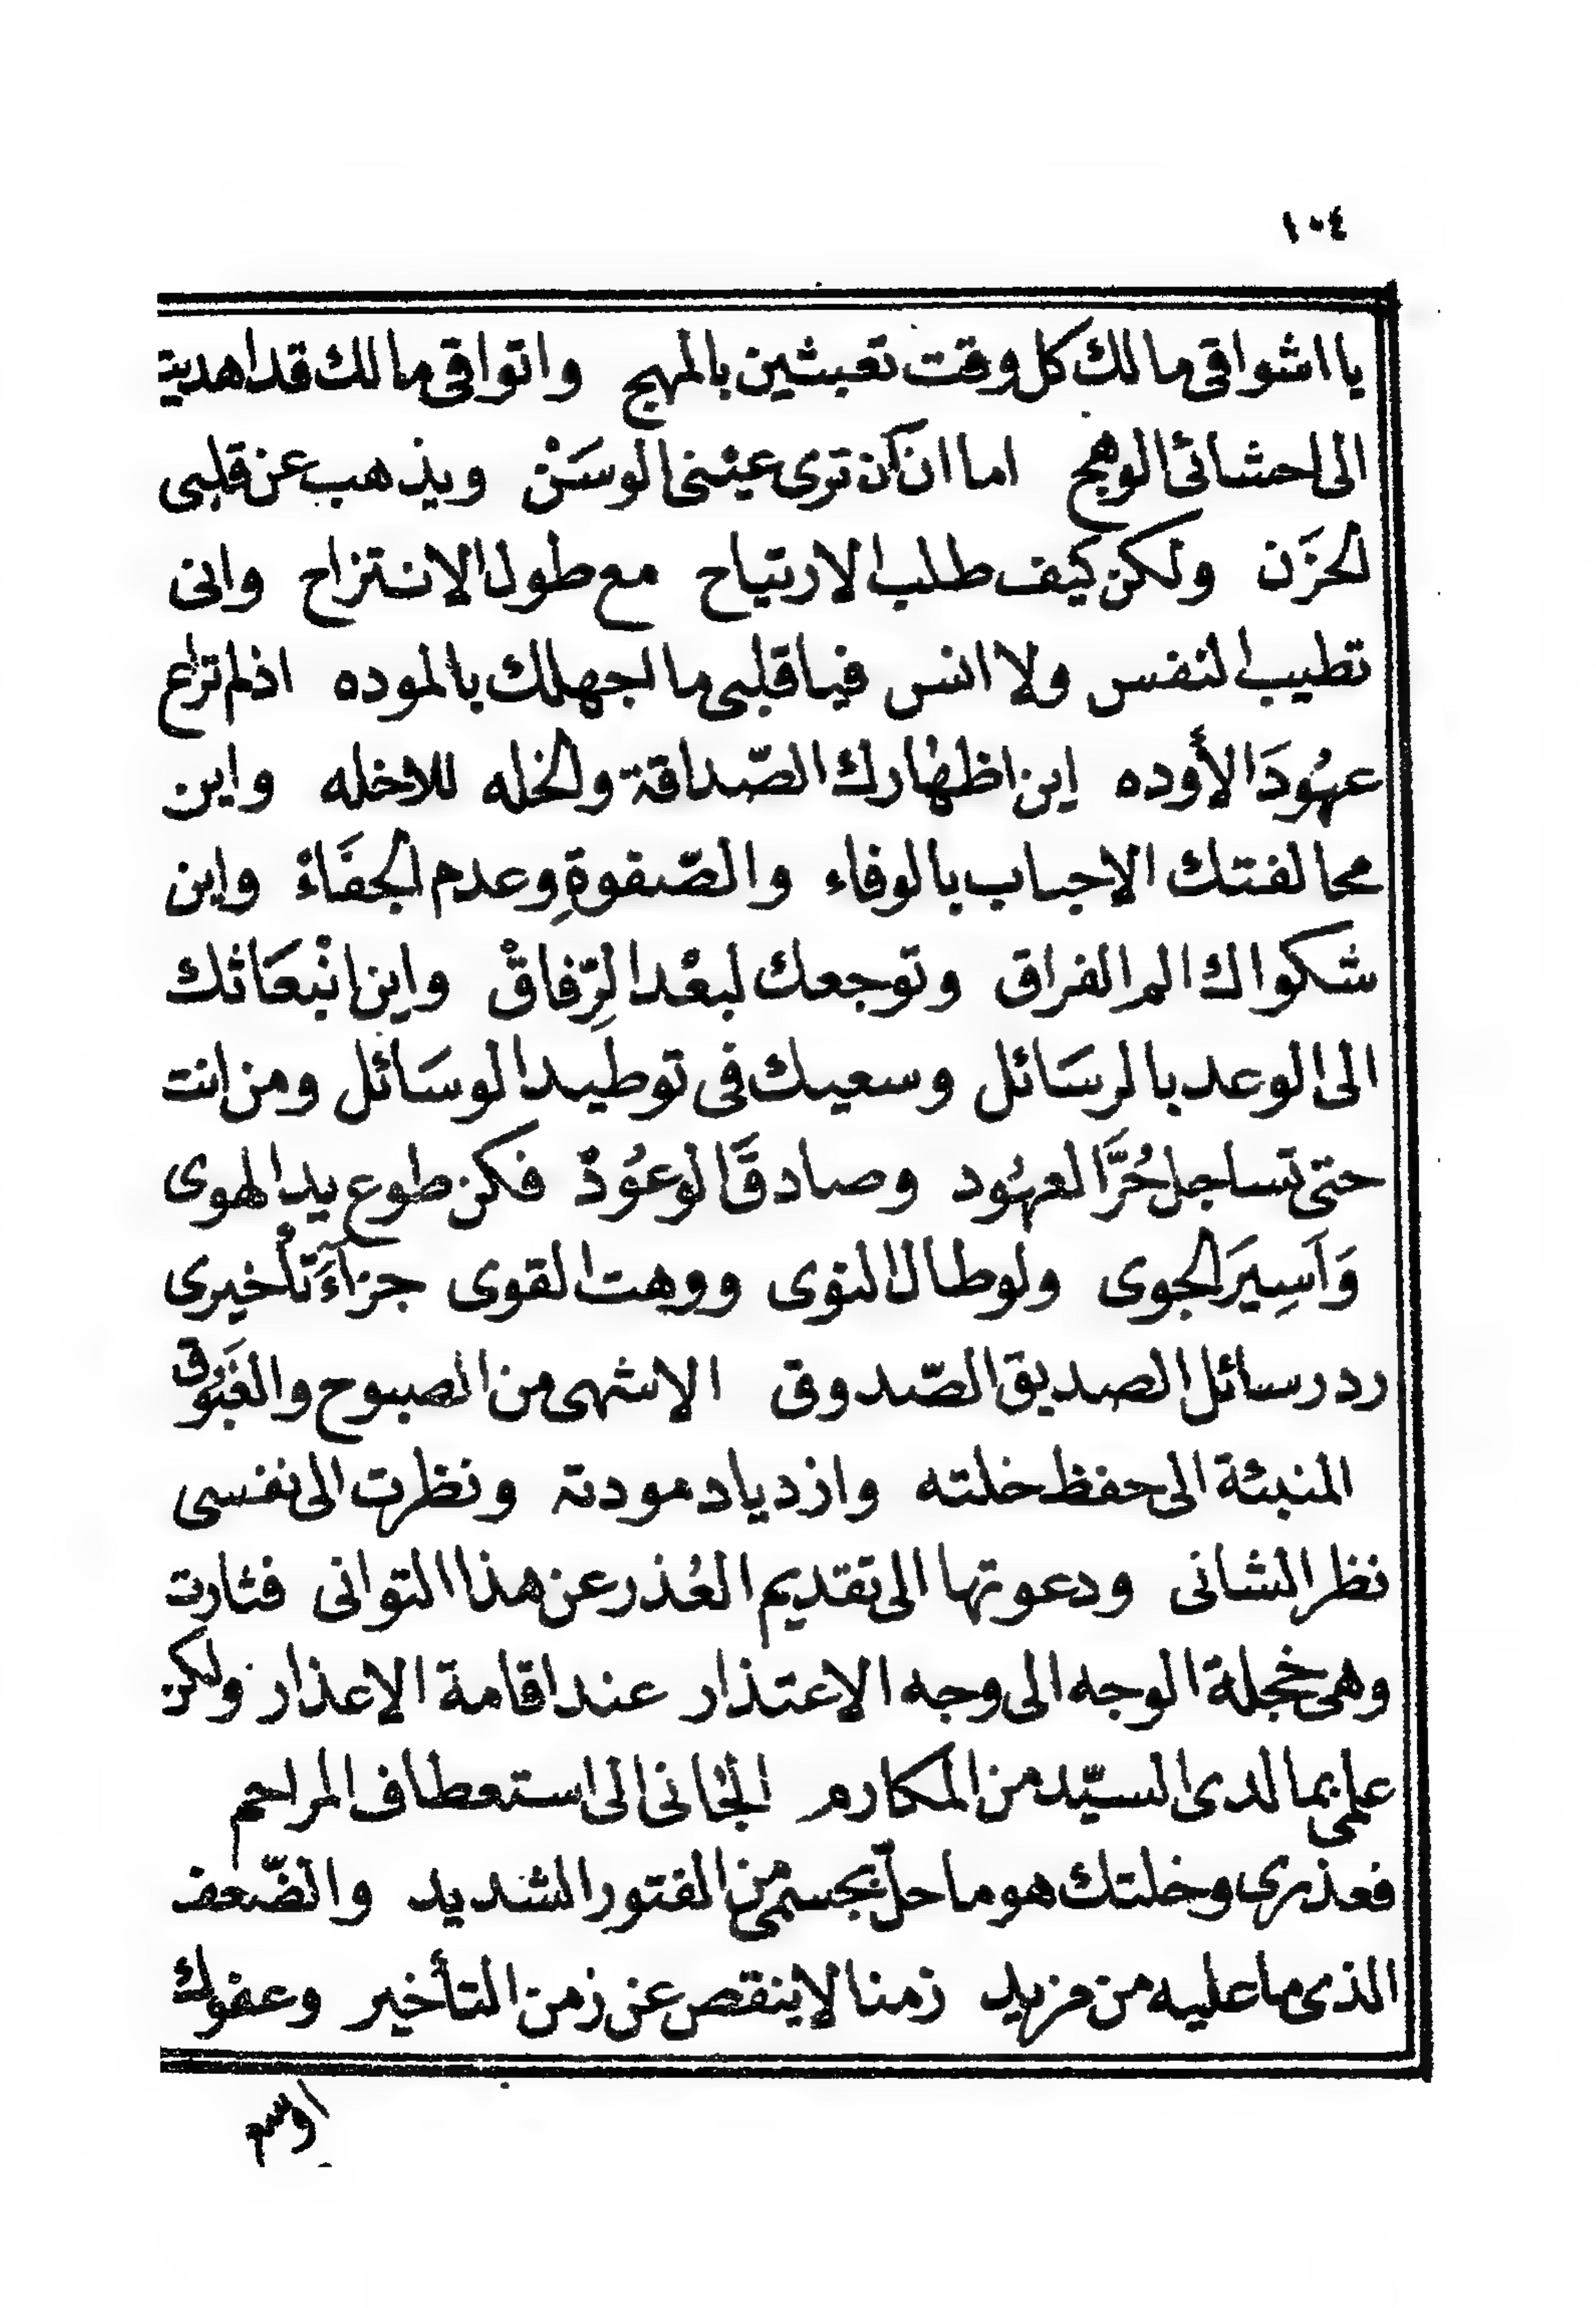 ١٠٤
يا اشواقى مالك كل وقت تعبثين بالمهج واتواقى مالك قد اهديت
الى احشائى الوهج اما ان ان ترى عينى الوسَنْ ويذهب عن قلبى
الحَزَن ولكن كيف طلب الارتياح مع طول الانتزاح وانى
تطيب النفس ولا انس فيا قلبى ما اجهلك بالموده اذ لم تراع
عهُودَ الأوده اين اظهٰارك الصّداقة والخله للاخله واين
محالفتك الاحباب بالوفاء والصّفوةِ وعدم الجفَاءْ واين
شكواك الم الفراق وتوجعك لبعْد الرِّفاقْ واين انْبعَاثك
الى الوعد بالرسَائل وسعيك فى توطيد الوسَائل ومن انت
حتى تساجل حُرَّ العهُود وصادقَ الوعُودْ فكن طوع يد الهوى
وَاَسِيَر الجوى ولو طال النوى ووهت القوى جزآءَ تأخيرى
رد رسائل الصديق الصّدوق الاشهى من الصبوح والغَبُوق
المنبئة الى حفظ خلته وازدياد مودته ونظرت الى نفسى
نظر الشانى ودعوتها الى تقديم العُذر عن هذا التوانى فثارت
وهى خجلة الوجه الى وجه الاعتذار عند اقامة الاعذار ولكن
علمى بما لدى السيّد من المكارم الجٰانى الى استعطاف المراحم
فعذرى وخلتك هو ما حلّ بجسمى من الفتور الشديد والضّعف
الذى ما عليه من مزيد زمنا لا ينقص عن زمن التأخير وعفوك
اوسع